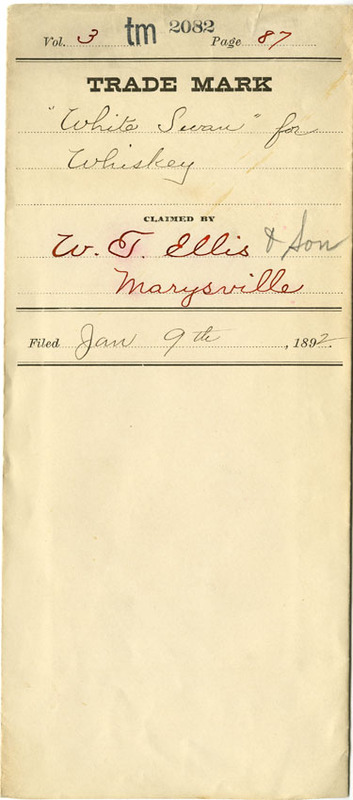 Vol. 3 tm 2082 Page 87
TRADE MARK
"White Swan" for
Whiskey
CLAIMED BY
W. T. Ellis & Son
Marysville
Filed Jan 9th, 1892.